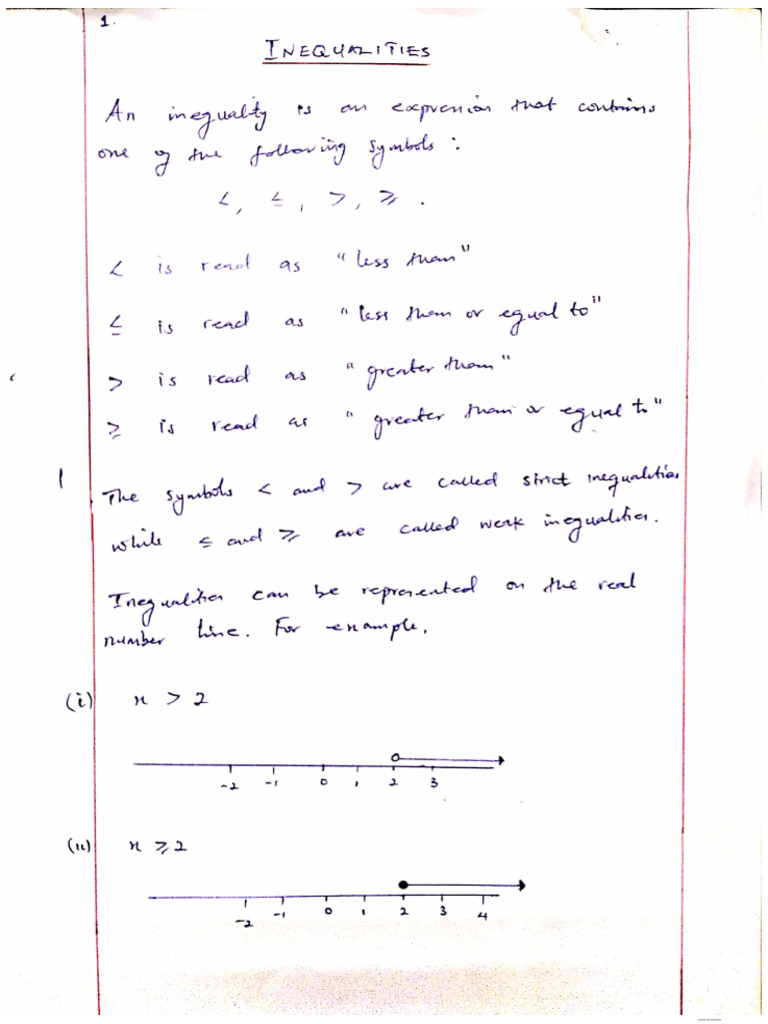 1.
INEQUALITIES
An inequality is an expression that contains
one of the following symbols :
<, ≤, >, ≥ .
< is read as "less than"
≤ is read as "less than or equal to"
> is read as "greater than"
≥ is read as "greater than or equal to"
The symbols < and > are called strict inequalities
while ≤ and ≥ are called weak inequalities.
Inequalities can be represented on the real
number line. For example,
(i) x > 2
-2 -1 0 1 2 3
(ii) x ≥ 2
-2 -1 0 1 2 3 4